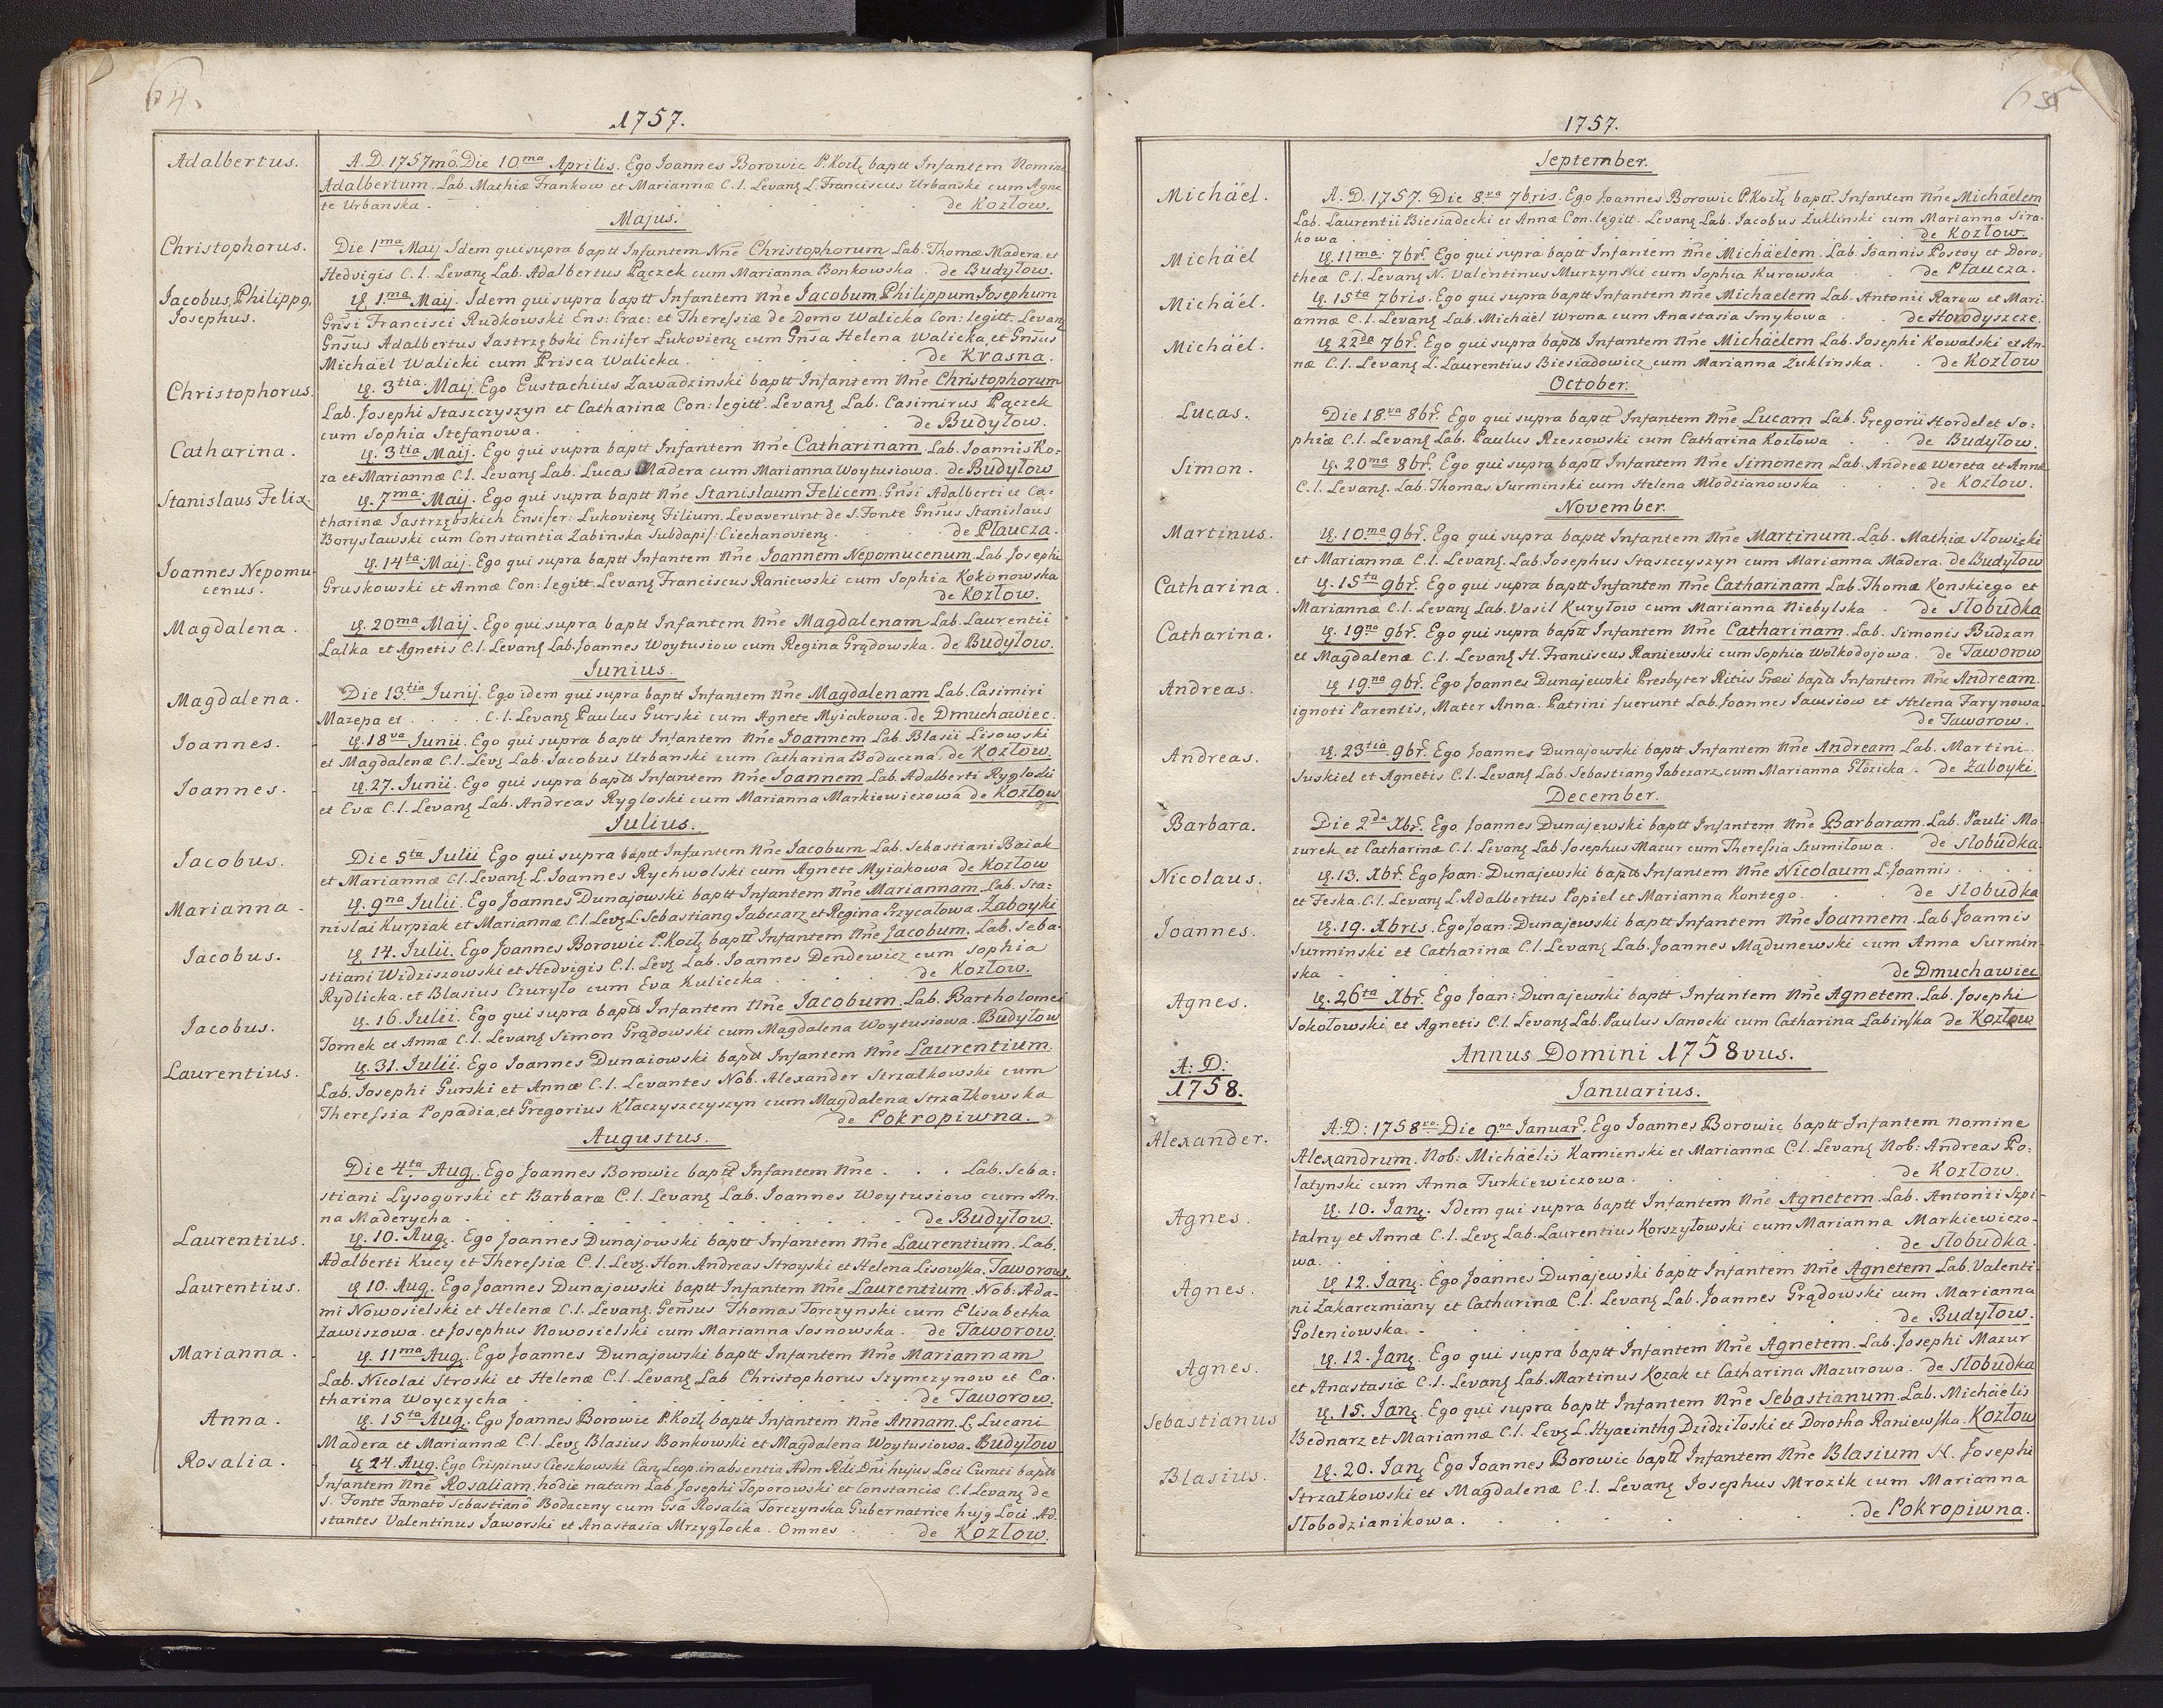 64.
1757.
Adalbertus.
A. D. 1757mô. Die 10ma Aprilis. Ego Joannes Borowic P. Kozł baptt Infantem Nomine
Adalbertum. Lab. Mathiæ Frankow et Mariannæ C. l. Levanł L. Franciscus Urbanski cum Agne
te Urbanska . de Kozłow.
Majus.
Christophorus.
Die 1ma Maij Idem qui supra baptt Infantem Nn̄e Christophorum Lab. Thomæ Madera et
Hedvigis C. l. Levanł Lab. Adalbertus Pączek cum Marianna Bonkowska . de Budyłow.
Jacobus, Philippg,
Josephus.
ejł. 1.ma Maij. Idem qui supra baptt Infantem Nn̄e Jacobum Philippum Josephum
Gn̄si Francisci Rudkowski Ens: Crac: et Theressiæ de Domo Walicka Con: legitt. Levanł
Gn̄sus Adalbertus Jastrzębski Ensifer Lukovienł cum Gn̄sa Helena Walicka, et Gn̄sus
Michäel Walicki cum Prisca Walicka . de Krasna.
Christophorus.
ejł. 3tia Maij Ego Eustachius Zawadzinski baptt Infantem Nn̄e Christophorum
Lab. Josephi Staszczyszyn et Catharinæ Con: legitt. Levanł Lab. Casimirus Pączek
cum Sophia Stefanowa . de Budyłow.
Catharina.
ejł. 3tia Maij. Ego qui supra baptt Infantem Nn̄e Catharinam Lab. Joannis Ko-
za et Mariannæ C. l. Levanł Lab. Lucas Madera cum Marianna Woytusiowa. de Budyłow
Stanislaus Felix.
ejł. 7ma Maij. Ego qui supra baptt Nn̄e Stanislaum Felicem. Gn̄si Adalberti et Ca-
tharinæ Jastrzębskich Ensifer: Lukovienł Filium. Levaverunt de S. Fonte Gn̄sus Stanislaus
Borysławski cum Constantia Zabinska Subdapif: Ciechanovienł . de Płaucza.
Joannes Nepomu
cenus.
ejł. 14ta Maij. Ego qui supra baptt Infantem Nn̄e Joannem Nepomucenum Lab. Josephi
Gruskowski et Annæ Con: legitt. Levanł Franciscus Raniewski cum Sophia Kokonowska
de Kozłow.
Magdalena.
ejł. 20ma Maij. Ego qui supra baptt Infantem Nn̄e Magdalenam Lab. Laurentii
Lalka et Agnetis C. l. Levanł Lab. Joannes Woytusiow cum Regina Grądowska. de Budyłow.
Junius.
Magdalena.
Die 13.tia Junij. Ego idem qui supra baptt Infantem Nn̄e Magdalenam Lab. Casimiri
Mazepa et . . . . C. l. Levanł Paulus Gurski cum Agnete Myiakowa. de Dmuchawiec.
Joannes.
ejł. 18va Junii. Ego qui supra baptt Infantem Nn̄e Joannem Lab. Blasii Lisowski
et Magdalenæ C. l. Levł Lab. Jacobus Urbanski cum Catharina Bodaczna. de Kozłow.
Joannes.
ejł. 27. Junii. Ego qui supra baptt Infantem Nn̄e Joannem Lab. Adalberti Rygloski
et Evæ C. l. Levanł Lab. Andreas Rygloski cum Marianna Markiewiczowa de Kozłow
Julius.
Jacobus.
Die 5ta Julii Ego qui supra baptt Infantem Nn̄e Jacobum Lab. Sebastiani Baiak
et Mariannæ C. l. Levanł L. Joannes Rychwolski cum Agnete Myiakowa de Kozłow
Marianna.
ejł. 9na Julii. Ego Joannes Dunajowski baptt Infantem Nn̄e Mariannam Lab. Sta-
nislai Kurpiak et Mariannæ C. l. Levł L. Sebastiang Jabczarz et Regina Przycałowa. Zaboyki
Jacobus.
ejł. 14. Julii. Ego Joannes Borowic P. Kozł baptt Infantem Nn̄e Jacobum. Lab. Seba-
stiani Widziszowski et Hedvigis C. l. Levł Lab. Joannes Dendewicz cum Sophia
Rydlicka. et Blasius Czuryło cum Eva Kuliczka . de Kozłow.
Jacobus.
ejł. 16. Julii. Ego qui supra baptt Infantem Nn̄e Jacobum. Lab. Bartholomei
Tomek et Annæ C. l. Levanł Simon Grądowski cum Magdalena Woytusiowa. Budyłow
Laurentius.
ejł. 31. Julii. Ego Joannes Dunaiowski baptt Infantem Nn̄e Laurentium.
Lab. Josephi Gurski et Annæ C. l. Levantes Nob. Alexander Strzałkowski cum
Theressia Popadia, et Gregorius Kłaczyszczyszyn cum Magdalena Strzałkowska
de Pokropiwna.
Augustus.
Die 4ta Aug. Ego Joannes Borowic baptt Infantem Nn̄e . . . Lab. Seba-
stiani Lysogorski et Barbaræ C. l. Levanł Lab. Joannes Woytusiow cum An-
na Maderycha . de Budyłow.
Laurentius.
ejł. 10. Augł. Ego Joannes Dunajowski baptt Infantem Nn̄e Laurentium. Lab.
Adalberti Kucy et Theressiæ C. l. Levł. Hon. Andreas Stroyski et Helena Lisowska. Taworow.
Laurentius.
ejł 10. Aug. Ego Joannes Dunajowski baptt Infantem Nn̄e Laurentium. Nob: Ada-
mi Nowosielski et Helenæ C. l. Levanł. Gensus Thomas Torczynski cum Elisabetha
Zawiszowa. et Josephus Nowosielski cum Marianna Sosnowska. de Taworow.
Marianna.
ejł. 11ma Augł. Ego Joannes Dunajowski baptt Infantem Nn̄e Mariannam
Lab. Nicolai Stroski et Helenæ C. l. Levanł Lab Christophorus Szymczynow et Ca-
tharina Woyczycha . de Taworow.
Anna.
ejł. 15ta Augł. Ego Joannes Borowic P. Kozł baptt Infantem Nn̄e Annam. L. Lucani
Madera et Mariannæ C. l. Levł Blazius Bonkowski et Magdalena Woytusiowa. Budyłow
Rosalia.
ejł 24. Aug. Ego Crispinus Cieszkowski Canł Leop. in absentia Adm. Rdi Dn̄i hujus Loci Curati baptt
Infantem Nn̄e Rosaliam, hodie natam Lab. Josephi Toporowski et Constanciæ C. l. Levanł de
S. Fonte Famatô Sebastianô Bodaczny cum Gsa Rosalia Torczynska Gubernatrice hujg Loci. Ad-
stantes Valentinus Jaworski et Anastasia Mrzygłocka. Omnes . de Kozłow.
1757.
September.
Michäel.
A. D. 1757. Die 8.va 7bris. Ego Joannes Borowic P. Kozł baptt. Infantem Nn̄e Michäelem
Lab. Laurentii Biesiadecki et Annæ Con. legitt. Levanł Lab. Jacobus Zuklinski cum Marianna Sira-
kowa . de Kozłow.
Michäel
ejł. 11ma. 7br̄. Ego qui supra baptt Infantem Nn̄e Michäelem. Lab. Joannis Postoy et Doro-
theæ C. l. Levanł N. Valentinus Murzynski cum Sophia Kurowska . de Płaucza.
Michäel.
ejł. 15ta 7bris. Ego qui supra baptt Infantem Nn̄e Michaelem Lab. Antonii Rarow et Mari-
annæ C. l. Levanł Lab. Michäel Wrona cum Anastasia Smykowa . de Horodyszcze.
Michäel.
ejł 22da 7br̄. Ego qui supra baptt Infantem Nn̄e Michäelem Lab. Josephi Kowalski et An-
næ C. l. Levanł L. Laurentius Biesiadowicz cum Marianna Zuklinska . de Kozłow
October.
Lucas.
Die 18.va 8br̄. Ego qui supra baptt Infantem Nn̄e Lucam Lab. Gregorii Hordel et So-
phiæ C. l. Levanł Lab. Paulus Rzeszowski cum Catharina Kozłowa . de Budyłow.
Simon.
ejł. 20ma 8br̄. Ego qui supra baptt Infantem Nn̄e Simonem Lab. Andreæ Wereta et Annæ
C. l. Levanł. Lab. Thomas Surminski cum Helena Młodzianowska . de Kozłow.
November.
Martinus.
ejł. 10.ma 9br̄. Ego qui supra baptt Infantem Nn̄e Martinum. Lab. Mathiæ Słowicki
et Mariannæ C. l. Levanł. Lab. Josephus Staszczyszyn cum Marianna Madera. de Budyłow
Catharina.
ejł. 15ta 9br̄. Ego qui supra baptt Infantem Nn̄e Catharinam Lab. Thomæ Konskiego et
Mariannæ C. l. Levanł Lab. Vasil Kuryłow cum Marianna Niebylska . de Słobudka
Catharina.
ejł. 19na 9br̄. Ego qui supra baptt Infantem Nn̄e Catharinam. Lab. Simonis Budzan
et Magdalenæ C. l. Levanł H. Franciscus Raniewski cum Sophia Wołkodojowa. de Taworow
Andreas.
ejł 19.na 9br̄. Ego Joannes Dunajewski Presbyter Ritûs Græci baptt Infantem Nn̄e Andream.
ignoti Parentis, Mater Anna. Patrini fuerunt Lab. Joannes Jamsiow et Helena Farynowa.
de Taworow.
Andreas.
ejł. 23tia 9br̄. Ego Joannes Dunajowski baptt. Infantem Nn̄e Andream Lab. Martini
Suskiel et Agnetis C. l. Levanł Lab. Sebastiang Jabczarz cum Marianna Głozicka . de Zaboyki.
December.
Barbara.
Die 2.da Xbr̄. Ego Joannes Dunajewski baptt Infantem Nn̄e Barbaram. Lab. Pauli Ma-
zurek et Catharinæ C. l. Levanł Lab. Josephus Mazur cum Theressia Szumiłowa . de Słobudka.
Nicolaus.
ejł. 13. Xbr̄. Ego Joan: Dunajewski baptt Infantem Nn̄e Nicolaum L. Joannis . . .
et Feska. C. l. Levanł L. Adalbertus Popiel et Marianna Kontego . de Słobudka
Joannes.
ejł. 19. Xbris. Ego Joan: Dunajewski baptt Infantem Nn̄e Joannem. Lab. Joannis
Surminski et Catharinæ C. l. Levanł Lab. Joannes Mądunewski cum Anna Surmin-
ska . de Dmuchawiec
Agnes.
ejł. 26ta Xbr̄. Ego Joan: Dunajewski baptt Infantem Nn̄e Agnetem. Lab. Josephi
Sokołowski et Agnetis C. l. Levanł Lab. Paulus Sanocki cum Catharina Labinska de Kozłow
Annus Domini 1758vus.
A: D:
1758.
Januarius.
Alexander.
A: D: 1758va. Die 9na Januar̄. Ego Joannes Borowic baptt Infantem nomine
Alexandrum. Nob: Michäelis Kamienski et Mariannæ C. l. Levanł Nob: Andreas Po-
latynski cum Anna Turkiewiczowa . de Kozłow.
Agnes.
ejł. 10. Janł. Idem qui supra baptt Infantem Nn̄e Agnetem. Lab. Antonii Szpi-
talny et Annæ C. l. Levł Lab. Laurentius Korszyłowski cum Marianna Markiewiczo-
wa . de Słobudka.
Agnes.
ejł 12. Janł. Ego Joannes Dunajewski baptt Infantem Nn̄e Agnetem Lab. Valenti-
ni Zakarczmiany et Catharinæ C. l. Levanł Lab. Joannes Grądowski cum Marianna
Goleniowska . de Budyłow.
Agnes.
ejł. 12. Janł. Ego qui supra baptt Infantem Nn̄e Agnetem. Lab. Josephi Mazur
et Anastasiæ C. l. Levanł Lab. Martinus Kozak et Catharina Mazurowa. de Słobudka
Sebastianus
ejł. 15. Janł. Ego qui supra baptt Infantem Nn̄e Sebastianum. Lab. Michäelis
Bednarz et Mariannæ C. l. Levł L. Hyacinthg Dzidziłoski et Dorotha Raniewska. Kozłow
Blasius.
ejł. 20. Janł Ego Joannes Borowic baptt Infantem Nn̄e Blasium H. Josephi
Strzałkowski et Magdalenæ C. l. Levanł Josephus Mrozik cum Marianna
Słobodzianikowa . de Pokropiwna.